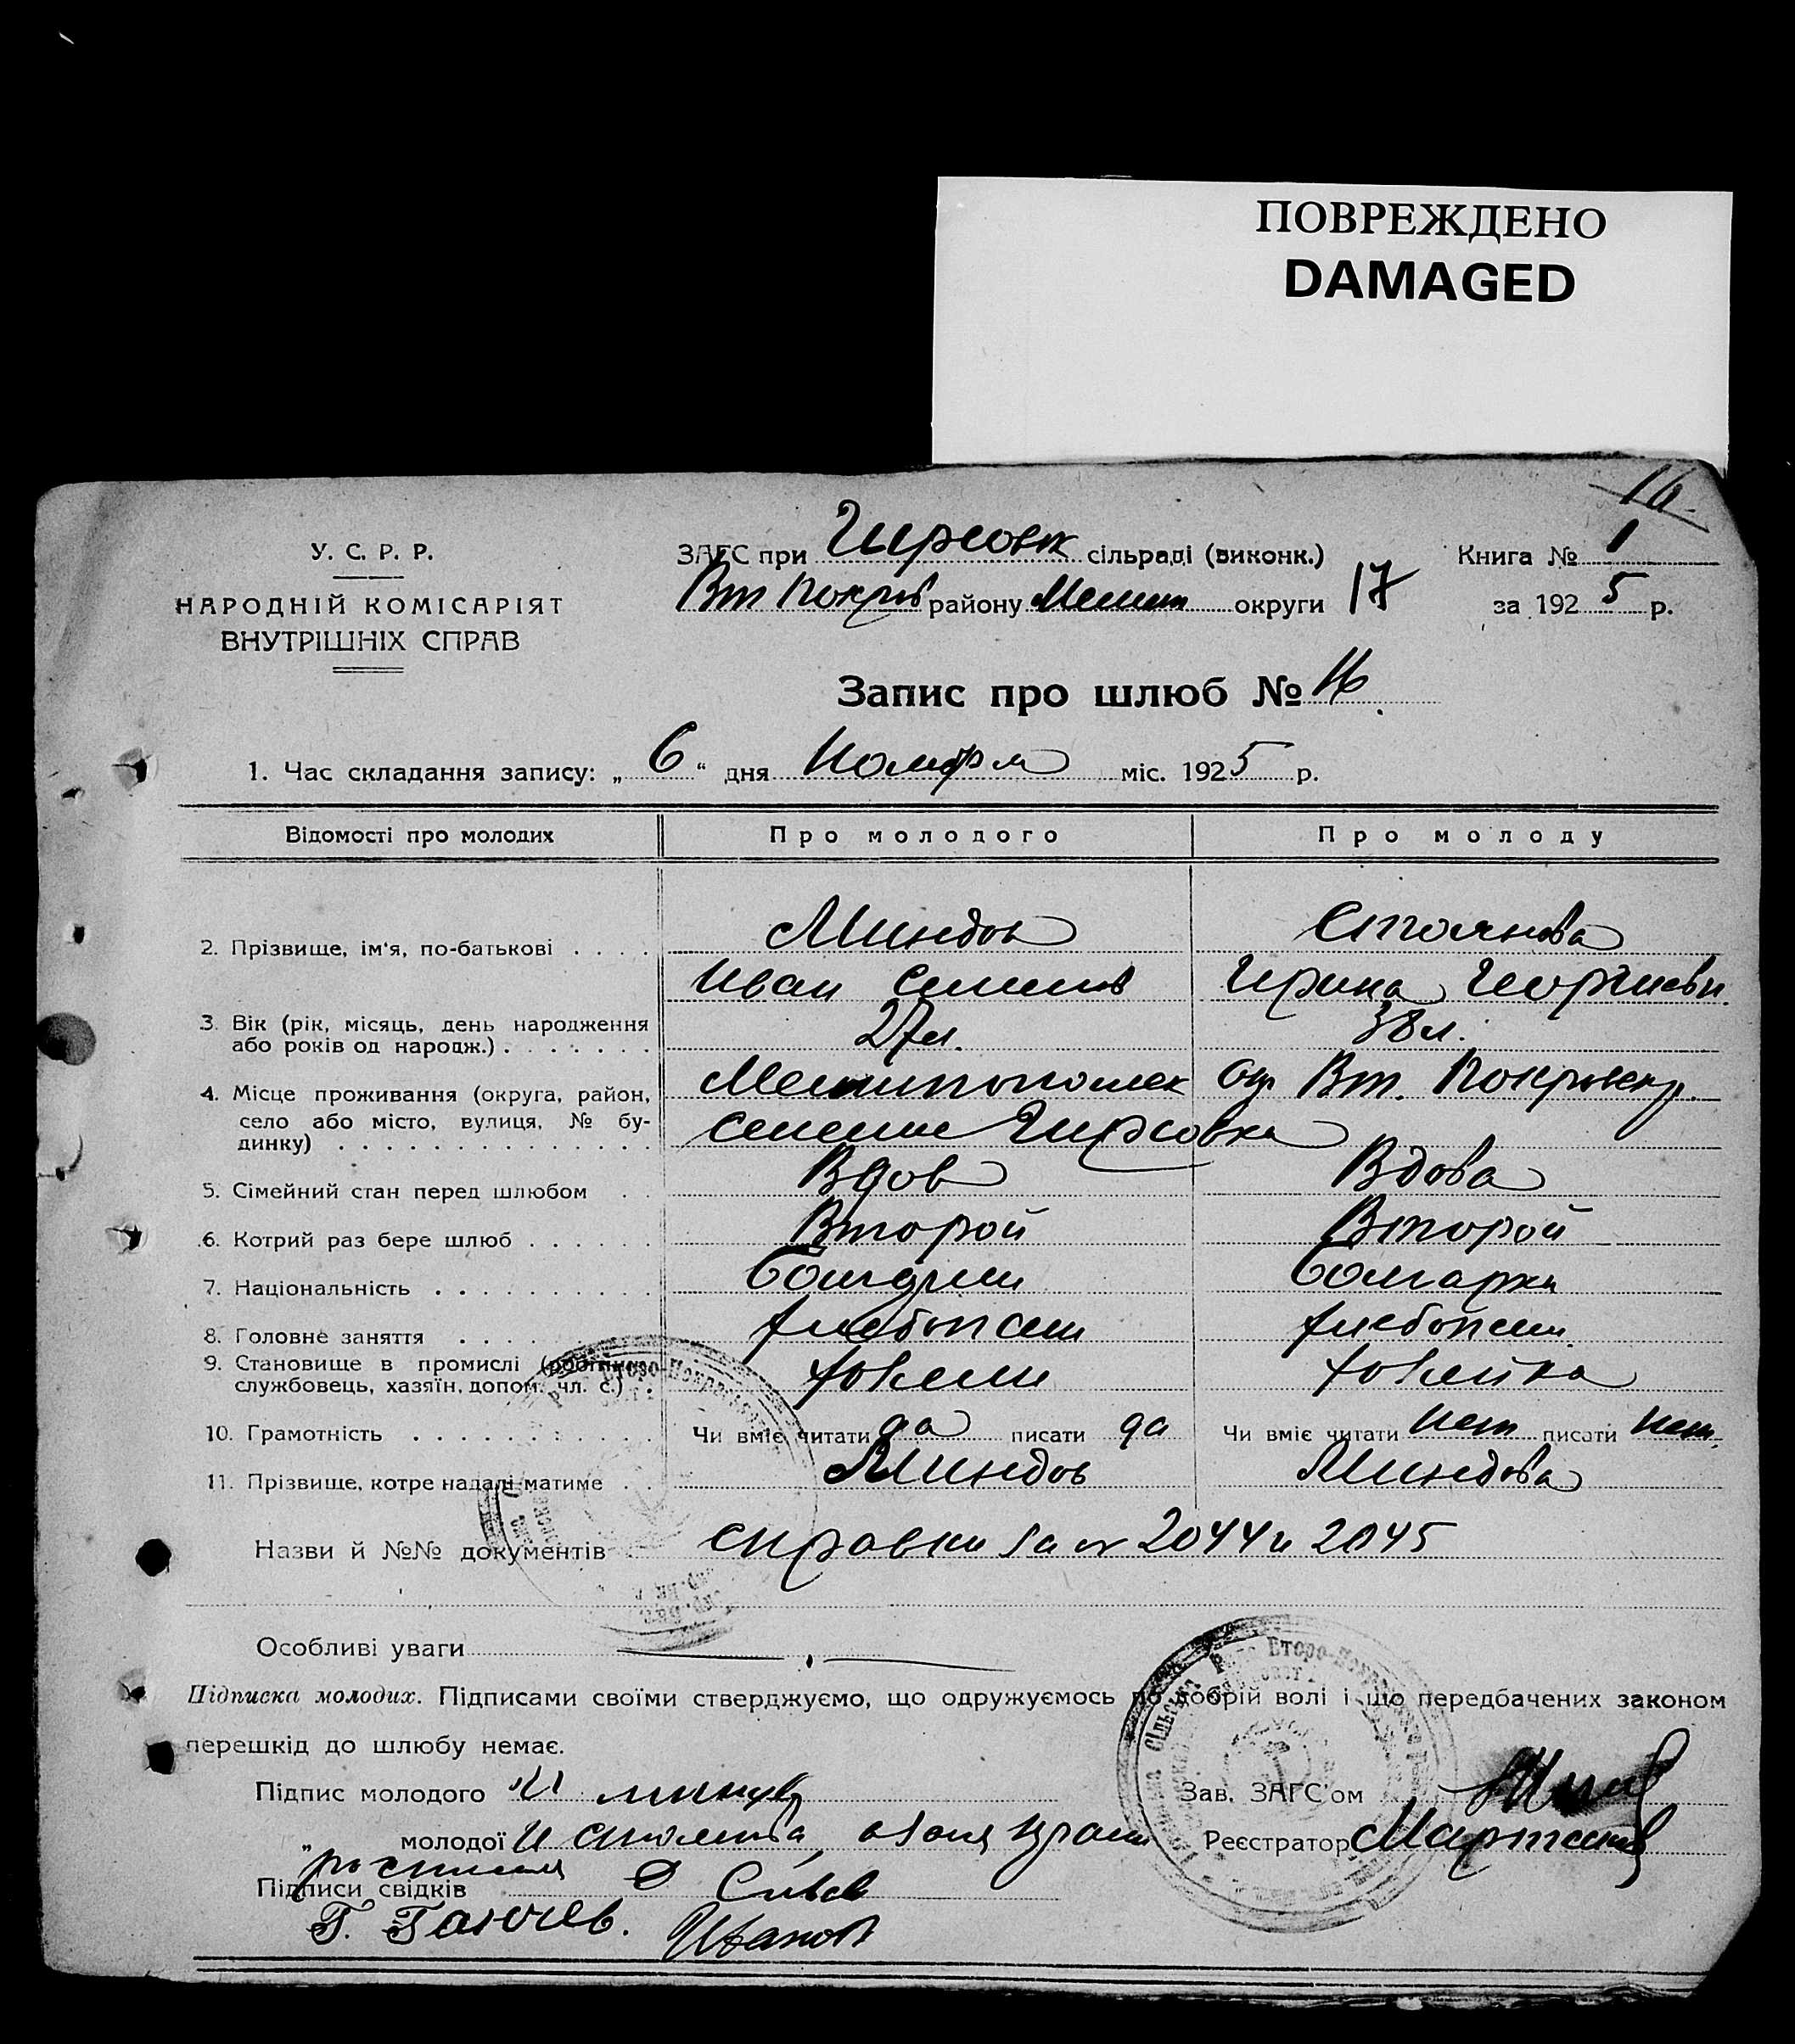 ПОВРЕЖДЕНО
DAMAGED
16.
У. С. Р. Р.
НАРОДНІЙ КОМІСАРІЯТ
ВНУТРІШНІХ СПРАВ
ЗАГС при Гирсовк сільраді (виконк.) Книга № 1
Вт Покров району Мелит округи 17 за 1925 р.
Запис про шлюб № 16
1. Час складання запису: „ 6 “ дня Ноября міс. 1925 р.
Відомості про молодих Про молодого Про молоду
2. Прізвище, ім'я, по-батькові . . . . Миндов Стоянова
Иван Семенов Ирина Георгиевн.
3. Вік (рік, місяць, день народження
або років од народж.) . . . . . . . 27 л. 38 л.
4. Місце проживання (округа, район, Мелитопольск окр Вт. Покровскр.
село або місто, вулиця, № бу-
динку) . . . . . . . . . . . . . . селение Гирсовка
5. Сімейний стан перед шлюбом . . Вдов Вдова
6. Котрий раз бере шлюб . . . . . . Второй Второй
7. Національність . . . . . . . . . . Болгарин Болгарка
8. Головне заняття . . . . . . . . Хлебопаш Хлебопаш.
9. Становище в промислі (робітник,
службовець, хазяїн, допом. чл. с.) . Хозяин Хозяйка
10. Грамотність . . . . . . . . . . . Чи вміє читати да писати да Чи вміє читати нет писати нет.
11. Прізвище, котре надалі матиме . . Миндов Миндова
Назви й №№ документів справки за № 2044 и 2045
Особливі уваги
Підписка молодих. Підписами своїми стверджуємо, що одружуємось по добрій волі і що передбачених законом
перешкід до шлюбу немає.
Підпис молодого И Зав. ЗАГС'ом
„ молодої И Стоянова, Реєстратор
Підписи свідків
Г. Ганчев. Иванов